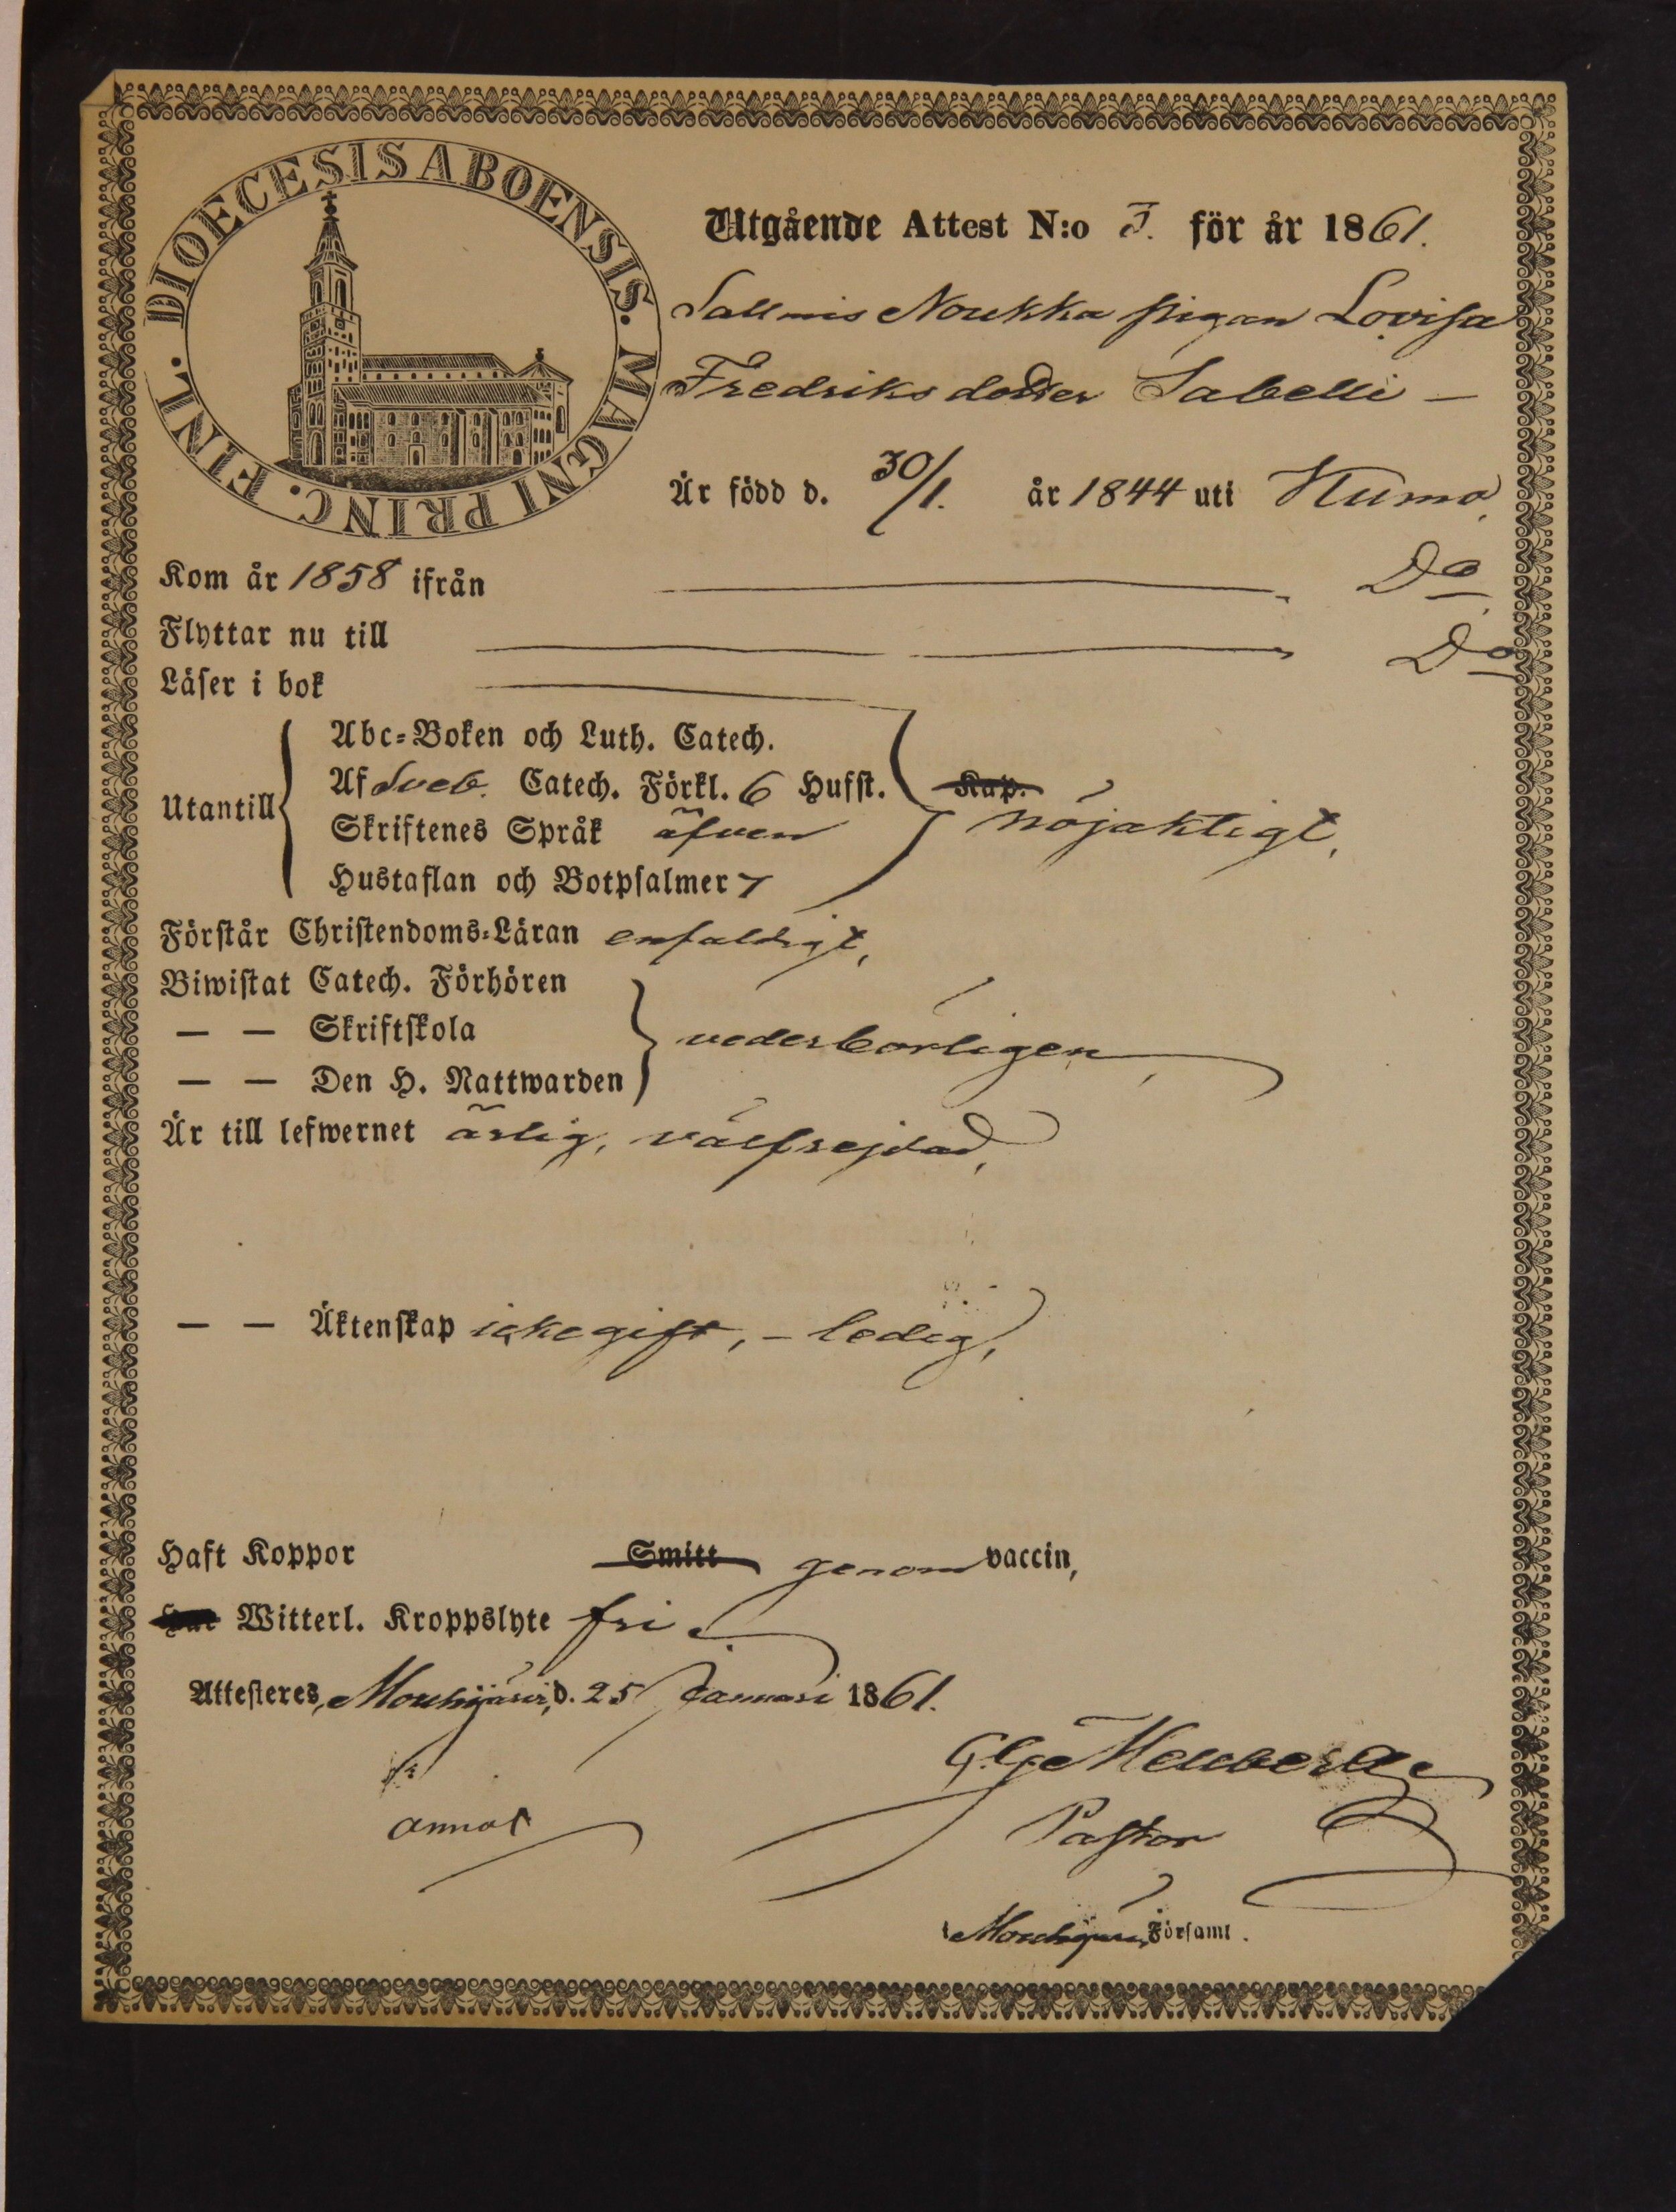 DIOECESIS ABOENSIS. MAGNI PRINC. FINL.
Utgående Attest N:o 3. för år 1861.
Sallmis Noukka pigan Lovisa
Fredriks dotter Sabelli —
Är född d. 30/1. år 1844 uti Kumo,
Kom år 1858 ifrån — Do
Flyttar nu till — Do
Läser i bok
Abc-Boken och Luth. Catech.
Utantill Af Sveb. Catech. Förkl. 6 Hufst. Kap.
Skriftenes Språk äfven nöjaktigt,
Hustaflan och Botpsalmer 7
Förstår Christendoms-Läran enfaldigt,
Biwistat Catech. Förhören
— — Skriftskola vederbörligen,
— — Den H. Nattwarden
Är till lefwernet ärlig, välfrejdad,
— — Äktenskap icke gift, – ledig,
Haft Koppor Smitt genom vaccin,
Har Witterl. Kroppslyte fri
Attesteres, Mouhijärvi, d. 25 Januari 1861.
Pastor
annot
i Mouhijärvi Församl.